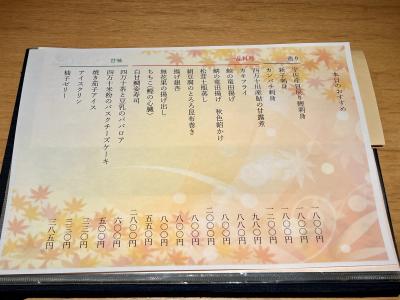 本日のおすすめ
造り
宇佐産日戻り鰹刺身 一八〇〇円
新子刺身 一八〇〇円
カンパチ刺身 一二〇〇円
一品料理
四万十川産鮎の甘露煮 九八〇円
カキフライ 八八〇円
鯨の竜田揚げ 八八〇円
鯖の竜田揚げ 秋色餡かけ
松茸土瓶蒸し 二〇〇〇円
絹豆腐のとろろ昆布巻き 八〇〇円
揚げ銀杏 八〇〇円
無花果の揚げ出し 八〇〇円
ちちこ(鰹の心臓) 五五〇円
白甘鯛姿寿司 二八〇〇円
甘味
四万十茶と豆乳のババロア 六〇〇円
四万十米粉のバスクチーズケーキ 五〇〇円
焼き茄子アイス 三三〇円
アイスクリン 三三〇円
柚子ゼリー 三八五円